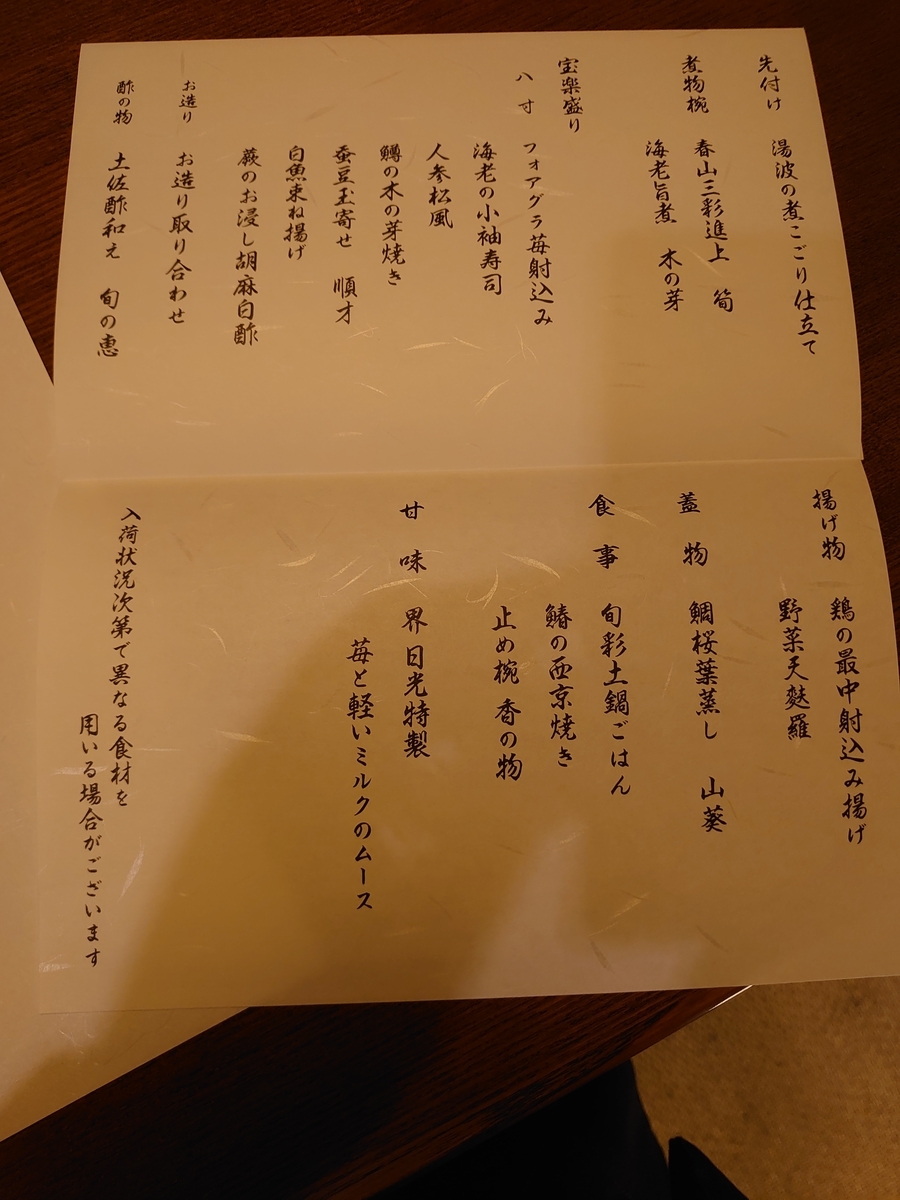 先付け 湯波の煮こごり仕立て
煮物椀 春山三彩進上 筍
海老旨煮 木の芽
宝楽盛り
八寸 フォアグラ苺射込み
海老の小袖寿司
人参松風
鱒の木の芽焼き
蚕豆玉寄せ 順才
白魚束ね揚げ
蕨のお浸し胡麻白酢
お造り お造り取り合わせ
酢の物 土佐酢和え 旬の恵
揚げ物 鶏の最中射込み揚げ
野菜天麩羅
蓋物 鯛桜葉蒸し 山葵
食事 旬彩土鍋ごはん
鰆の西京焼き
止め椀 香の物
甘味 界日光特製
苺と軽いミルクのムース
入荷状況次第で異なる食材を
用いる場合がございます